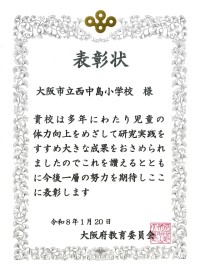 表彰状
大阪市立西中島小学校 様
貴校は多年にわたり児童の
体力向上をめざして研究実践を
すすめ大きな成果をおさめられ
ましたのでこれを讃えるととも
に今後一層の努力を期待しここ
に表彰します
令和8年1月20日
大阪府教育委員会